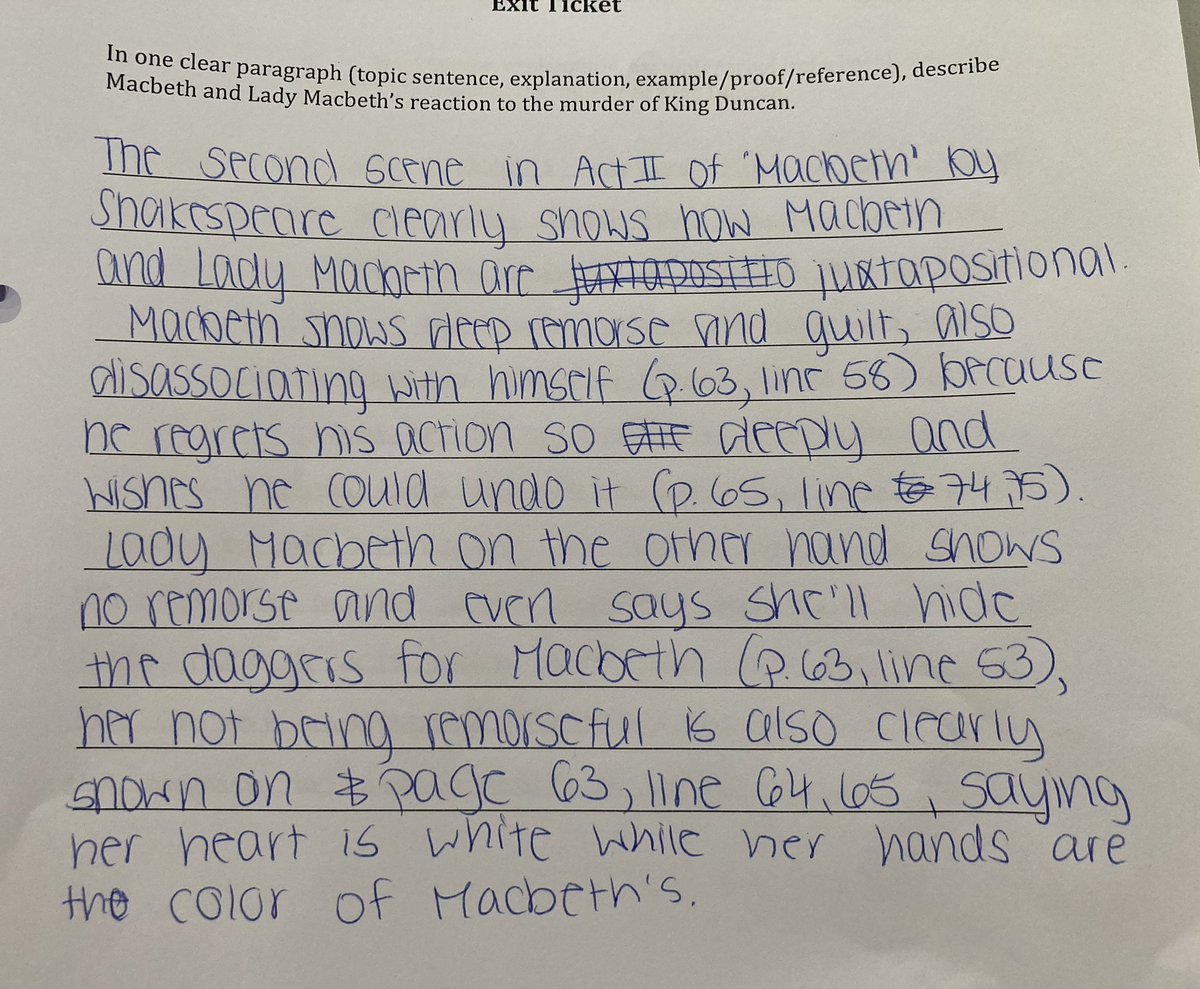 Exit Ticket
In one clear paragraph (topic sentence, explanation, example/proof/reference), describe
Macbeth and Lady Macbeth's reaction to the murder of King Duncan.
The second scene in Act II of 'Macbeth' by
Shakespeare clearly shows how Macbeth
and Lady Macbeth are juxtapositio juxtapositional.
Macbeth shows deep remorse and guilt, also
disassociating with himself (p. 63, line 58) because
he regrets his action so deeply and
wishes he could undo it (p. 65, line to 74,75).
Lady Macbeth on the other hand shows
no remorse and even says she'll hide
the daggers for Macbeth (p. 63, line 53),
her not being remorseful is also clearly
shown on page 63, line 64, 65, saying
her heart is white while her hands are
the color of Macbeth's.